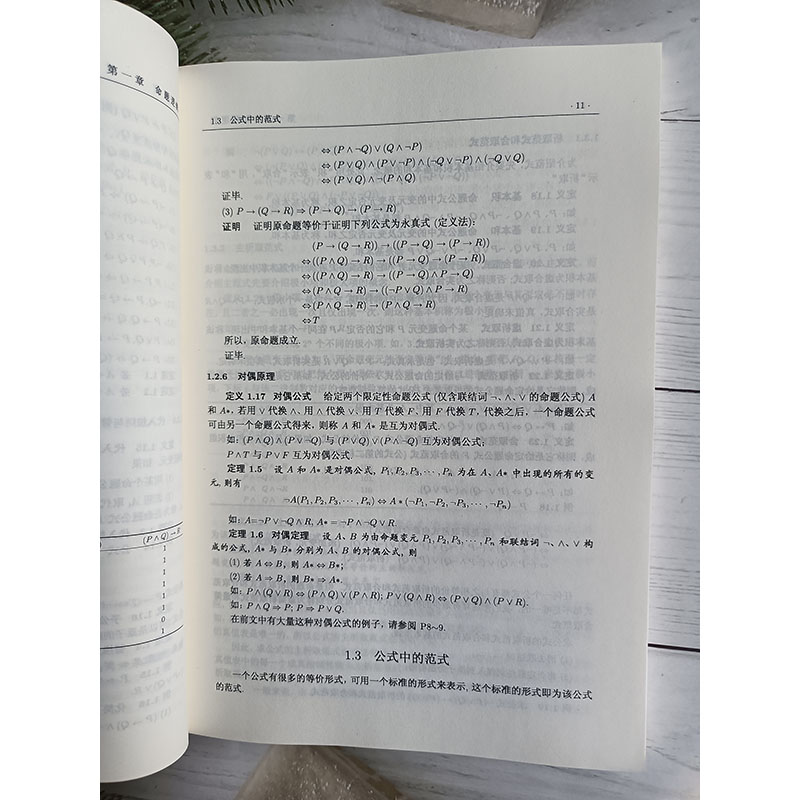 第一章 命题逻
(P∧Q)→R
1
1
1
1
1
1
0
1
1.3 公式中的范式
·11·
⇔(P∧¬Q)∨(Q∧¬P)
⇔(P∨Q)∧(P∨¬P)∧(¬Q∨¬P)∧(¬Q∨Q)
⇔(P∨Q)∧¬(P∧Q)
证毕.
(3) P→(Q→R)⇒(P→Q)→(P→R)
证明 证明原命题等价于证明下列公式为永真式 (定义法):
(P→(Q→R))→((P→Q)→(P→R))
⇔((P∧Q)→R)→((P→Q)→(P→R))
⇔((P∧Q)→R)→((P→Q)∧P→R)
⇔(P∧Q→R)→((¬P∨Q)∧P→R)
⇔(P∧Q→R)→(P∧Q→R)
⇔T
所以, 原命题成立.
证毕.
1.2.6 对偶原理
定义 1.17 对偶公式 给定两个限定性命题公式 (仅含联结词 ¬、∧、∨ 的命题公式) A
和 A*, 若用 ∨ 代换 ∧、用 ∧ 代换 ∨、用 T 代换 F、用 F 代换 T, 代换之后, 一个命题公式
可由另一个命题公式得来, 则称 A 和 A* 是互为对偶式.
如: (P∧Q)∧(P∨¬Q) 与 (P∨Q)∨(P∧¬Q) 互为对偶公式;
P∧T 与 P∨F 互为对偶公式.
定理 1.5 设 A 和 A* 是对偶公式, P₁,P₂,P₃,⋯,Pₙ 为在 A、A* 中出现的所有的变
元, 则有
¬A(P₁,P₂,P₃,⋯,Pₙ)⇔A*(¬P₁,¬P₂,¬P₃,⋯,¬Pₙ)
如: A=¬P∨¬Q∧R, A*=¬P∧¬Q∨R.
定理 1.6 对偶定理 设 A、B 为由命题变元 P₁,P₂,P₃,⋯,Pₙ 和联结词 ¬、∧、∨ 构
成的公式, A* 与 B* 分别为 A、B 的对偶公式, 则
(1) 若 A⇔B, 则 A*⇔B*;
(2) 若 A⇒B, 则 B*⇒A*.
如: P∧(Q∨R)⇔(P∧Q)∨(P∧R); P∨(Q∧R)⇔(P∨Q)∧(P∨R).
如: P∧Q⇒P; P⇒P∨Q.
在前文中有大量这种对偶公式的例子, 请参阅 P8~9.
1.3 公式中的范式
一个公式有很多的等价形式, 可用一个标准的形式来表示, 这个标准的形式即为该公式
的范式.